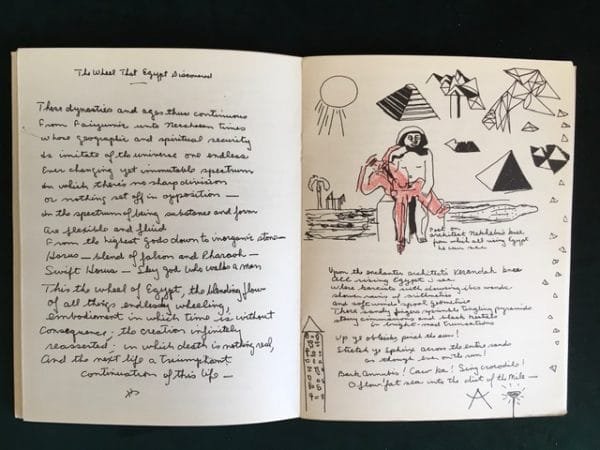 The Wheel That Egypt Discovered
These dynasties and ages thus continuous
From Faiyumic unto Nersehean times
Whose geographic and spiritual security
Is imitate of the universe one endless
Ever changing yet immutable spectrum
In which there's no sharp division
or nothing set off in opposition —
In the spectrum of being substance and form
Are flexible and fluid
From the highest gods down to inorganic stone —
Horus — blend of falcon and Pharaoh —
Swift Horus — Sky god who walks a man
This the wheel of Egypt, the blending flow
of all things endlessly wheeling,
embodiment in which time is without
Consequence; the creation infinitely
reasserted; in which death is nothing real,
And the next life a triumphant
continuation of this life —
Poet on
architect Nekhebu's knee
from which all rising Egypt
he can see
Upon the enchanter architect's Verandah knee
All rising Egypt I see
There sandy fingers sprinkle tingling pyramids
Up ye obelisks
Stretch ye Sphinx across the entire sands
as though ever unto now!
Bark Annubis! Caw ka! Sing crocodile!
O flow fat sea into the dist of the Nile —